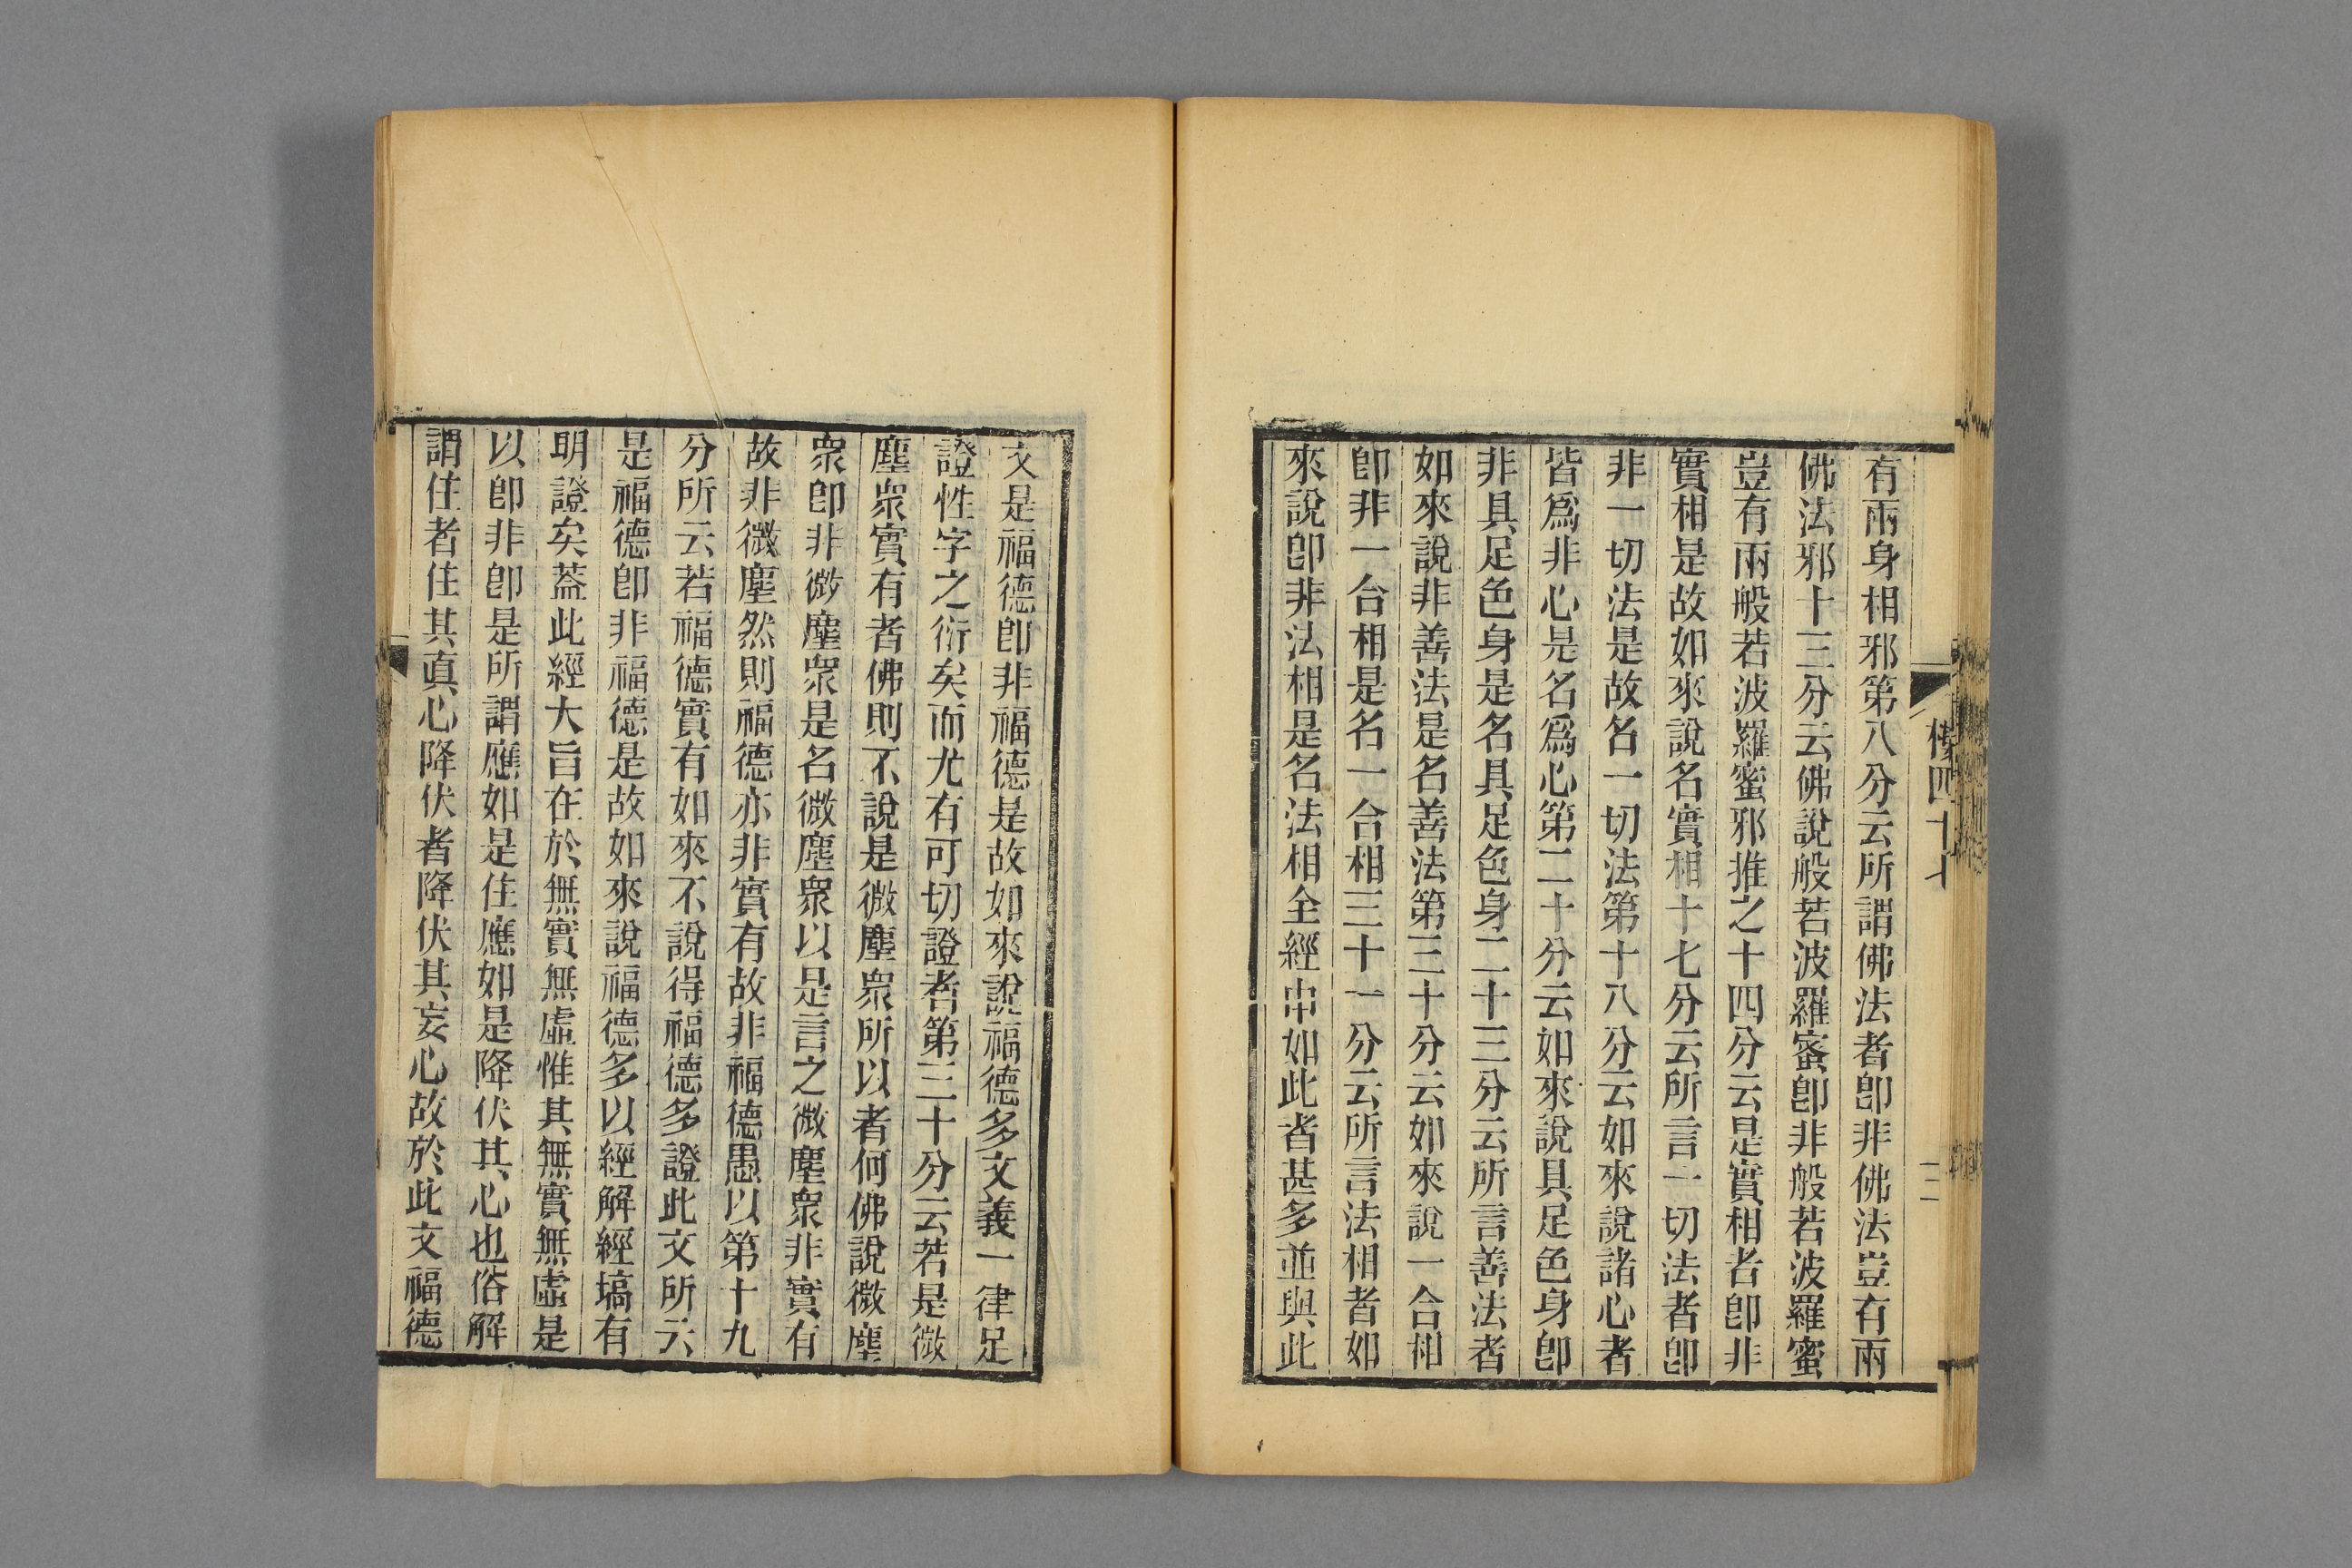 有兩身相邪第八分云所謂佛法者卽非佛法豈有兩
佛法邪十三分云佛說般若波羅蜜卽非般若波羅蜜
豈有兩般若波羅蜜邪推之十四分云是實相者卽非
實相是故如來說名實相十七分云所言一切法者卽
非一切法是故名一切法第十八分云如來說諸心者
皆爲非心是名爲心第二十分云如來說具足色身卽
非具足色身是名具足色身二十三分云所言善法者
如來說非善法是名善法第三十分云如來說一合相
卽非一合相是名一合相三十一分云所言法相者如
來說卽非法相是名法相全經中如此者甚多並與此
文是福德卽非福德是故如來說福德多文義一律足
證性字之衍矣而尤有可切證者第三十分云若是微
塵衆實有者佛則不說是微塵衆所以者何佛說微塵
衆卽非微塵衆是名微塵衆以是言之微塵衆非實有
故非微塵然則福德亦非實有故非福德愚以第十九
分所云若福德實有如來不說得福德多證此文所云
是福德卽非福德是故如來說福德多以經解經塙有
明證矣葢此經大旨在於無實無虛惟其無實無虛是
以卽非卽是所謂應如是住應如是降伏其心也俗解
謂住者住其真心降伏者降伏其妄心故於此文福德
四十七
二